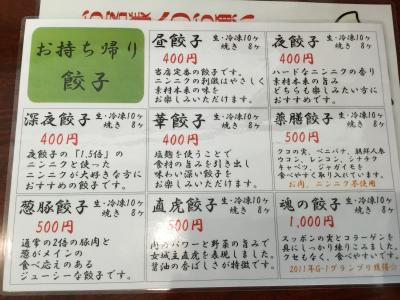 お持ち帰り
餃子
昼餃子 生・冷凍10ヶ
焼き 8ヶ
400円
当店定番の餃子です。
ニンニクの刺激はやさしく
素材本来の味を
お楽しみいただけます。
夜餃子 生・冷凍10ヶ
焼き 8ヶ
400円
ハードなニンニクの香り
素材本来の旨み
どちらも楽しみたい方に
おすすめです。
深夜餃子 生・冷凍10ヶ
焼き 8ヶ
400円
夜餃子の「1.5倍」の
ニンニクを使った
ニンニクが大好きな方に
おすすめの餃子です。
華餃子 生・冷凍10ヶ
焼き 8ヶ
400円
塩麹を使うことで
食材の旨みを引き出し
味わい深い餃子を
お楽しみいただけます。
薬膳餃子 生・冷凍10ヶ
焼き 8ヶ
500円
クコの実、ベニバナ、朝鮮人参
ウコン、レンコン、シナチク
キャベツ、ジャガイモを
食べやすく取り入れています。
お肉、ニンニク不使用
葱豚餃子 生・冷凍10ヶ
焼き 8ヶ
500円
通常の2倍の豚肉と
葱がメインの
食べ応えのある
ジューシーな餃子です。
直虎餃子 生・冷凍10ヶ
焼き 8ヶ
500円
肉のパワーと野菜の旨みで
女城主直虎を表現しました。
醤油の香ばしさが特徴です。
魂の餃子 生・冷凍10ヶ
焼き 8ヶ
1,000円
スッポンの実とコラーゲンを
具にしっかり練りこみました。
クセもなく、食べやすいです。
2011年G-1グランプリ獲得☆